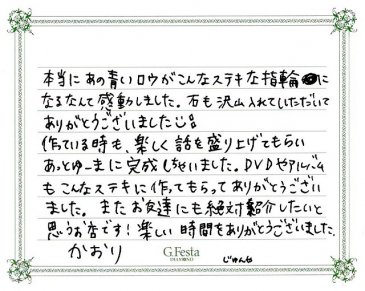 本当にあの青いロウがこんなステキな指輪に
なるなんて感動しました。石も沢山入れていただいて
ありがとうございました
作っている時も、楽しく話を盛り上げてもらい
あっとゆーまに完成しちゃいました。DVDやアルバム
もこんなステキに作ってもらってありがとうござい
ました。またお友達にも絶対紹介したいと
思うお店です！楽しい時間をありがとうございました。
かおり
G.Festa
じゅんや